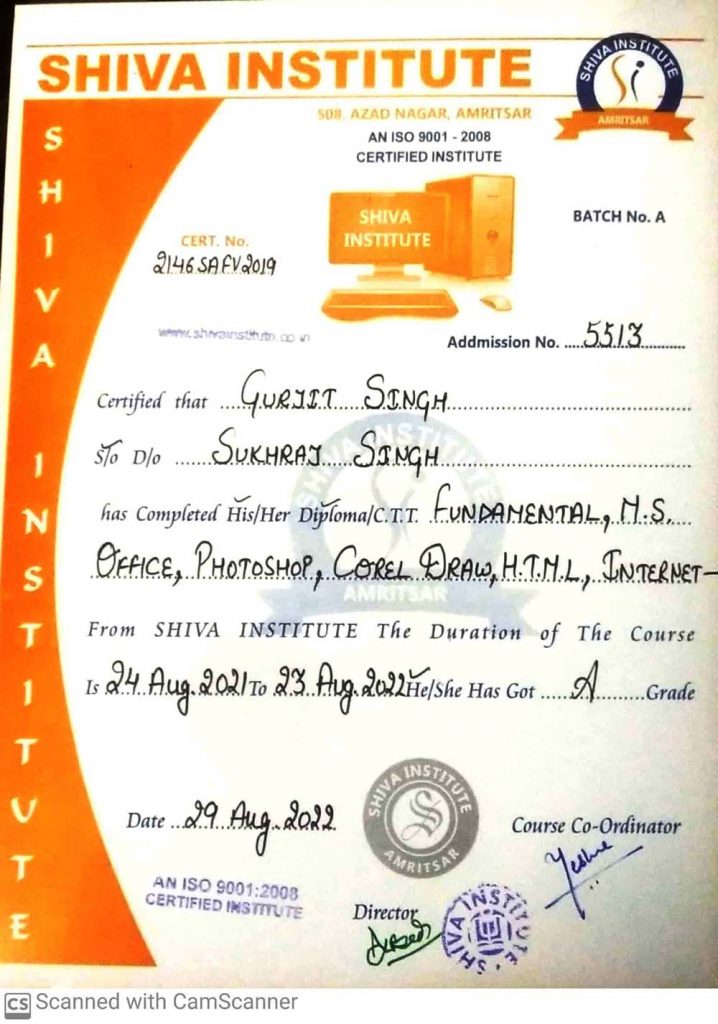 SHIVA INSTITUTE
SHIVA INSTITUTE
AMRITSAR
508, AZAD NAGAR, AMRITSAR
AN ISO 9001 - 2008
CERTIFIED INSTITUTE
SHIVA
INSTITUTE
BATCH No. A
CERT. No.
2146SAFV2019
www.shivainstitute.co.in
Addmission No. .....5513...........
SHIVA INSTITUTE
Certified that ...GURJIT SINGH...
S/o D/o ......SUKHRAJ SINGH...
SHIVA INSTITUTE
has Completed His/Her Diploma/C.T.T. FUNDAMENTAL, M.S.
OFFICE, PHOTOSHOP, COREL DRAW, H.T.M.L., INTERNET-
AMRITSAR
From SHIVA INSTITUTE The Duration of The Course
Is 24 Aug. 2021 To 23 Aug. 2022 He/She Has Got ......A.........Grade
SHIVA INSTITUTE
AMRITSAR
Date ...29 Aug. 2022
Course Co-Ordinator
AN ISO 9001:2008
CERTIFIED INSTITUTE
Director
SHIVA INSTITUTE
CS Scanned with CamScanner